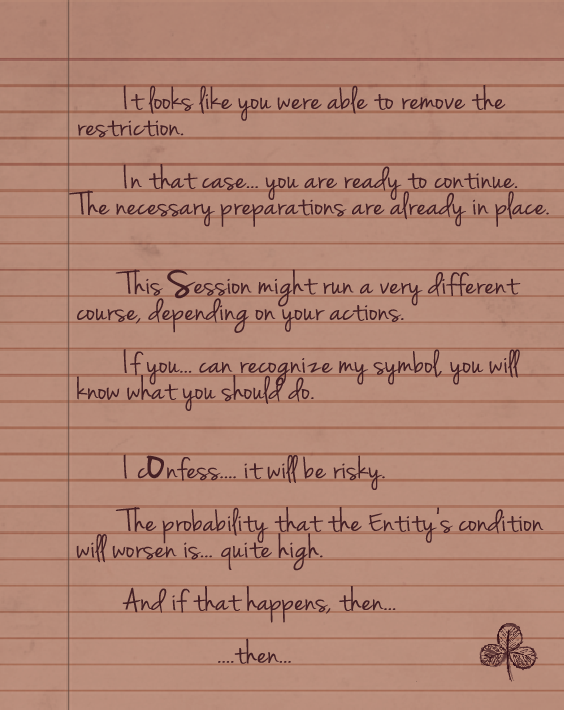 It looks like you were able to remove the
restriction.
In that case... you are ready to continue.
The necessary preparations are already in place.
This Session might run a very different
course, depending on your actions.
If you... can recognize my symbol, you will
know what you should do.
I cOnfess.... it will be risky.
The probability that the Entity's condition
will worsen is... quite high.
And if that happens, then...
....then...